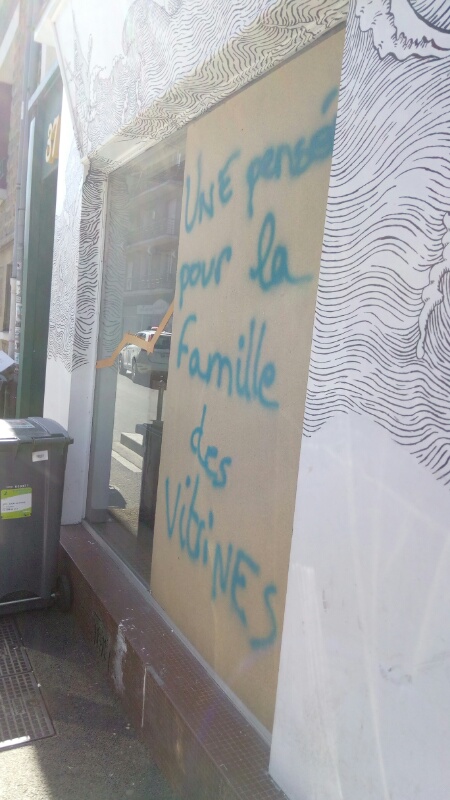 87
UNE pensée
pour la
famille
des
VitriNES